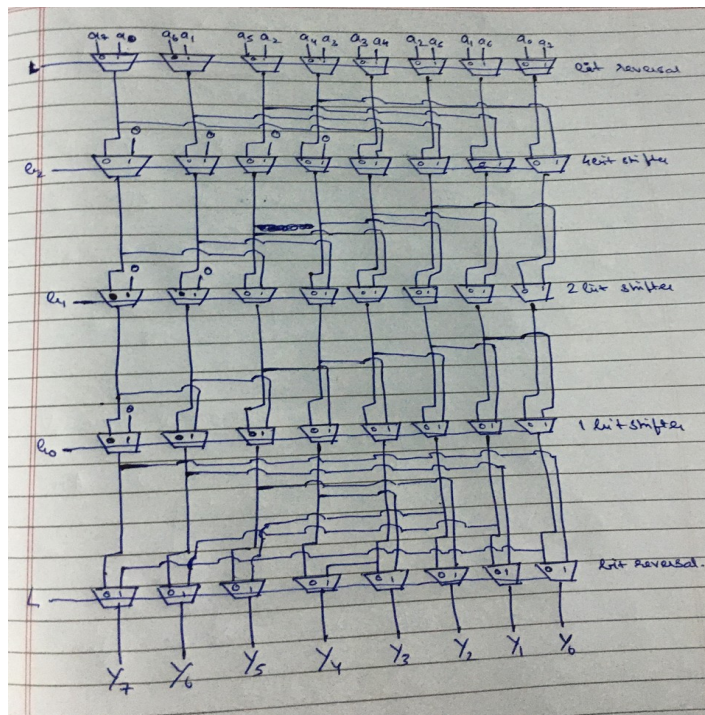 a7 a0 a6 a1 a5 a2 a4 a3 a3 a4 a2 a5 a1 a6 a0 a7
L 0 1 0 1 0 1 0 1 0 1 0 1 0 1 0 1 bit reversal
0 0 0 0
b2 0 1 0 1 0 1 0 1 0 1 0 1 0 1 0 1 4 bit shifter
0 0
b1 0 1 0 1 0 1 0 1 0 1 0 1 0 1 0 1 2 bit shifter
0
b0 0 1 0 1 0 1 0 1 0 1 0 1 0 1 0 1 1 bit shifter
L 0 1 0 1 0 1 0 1 0 1 0 1 0 1 0 1 bit reversal.
Y7 Y6 Y5 Y4 Y3 Y2 Y1 Y0